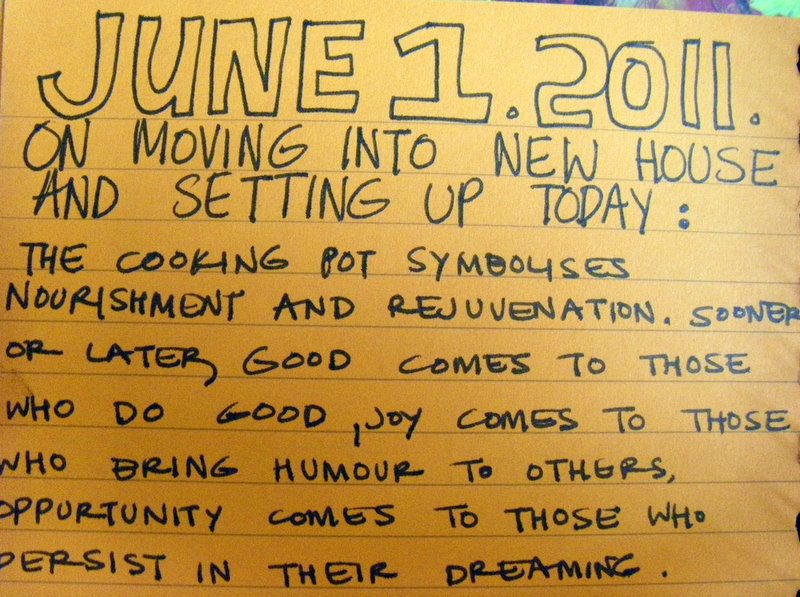 JUNE 1. 2011.
ON MOVING INTO NEW HOUSE
AND SETTING UP TODAY:
THE COOKING POT SYMBOLISES
NOURISHMENT AND REJUVENATION. SOONER
OR LATER, GOOD COMES TO THOSE
WHO DO GOOD, JOY COMES TO THOSE
WHO BRING HUMOUR TO OTHERS,
OPPURTUNITY COMES TO THOSE WHO
PERSIST IN THEIR DREAMING.